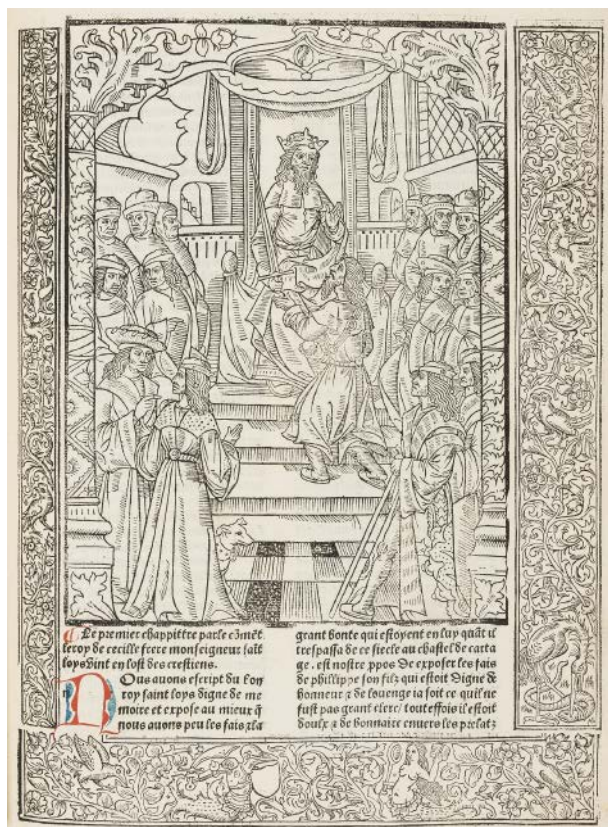 ¶ Le premier chappittre parle cõmẽt
le roy de cecille frere monseigneur sait
loys vint en lost des crestiens.
Nous avons escript du bon
roy saint loys digne de me
moire et expose au mieux q̃
nous auons peu les fais ⁊ la
grant bonte qui estoyent en luy quãt il
trespassa de ce siecle au chastel de carta
ge. est nostre ppos de exposer les fais
de phillippe son filz qui estoit digne de
honneur ⁊ de louenge ia soit ce quil ne
fust pas grant clerc/ toutteffois il estoit
doulx ⁊ de bonnaire enuers les prelatz